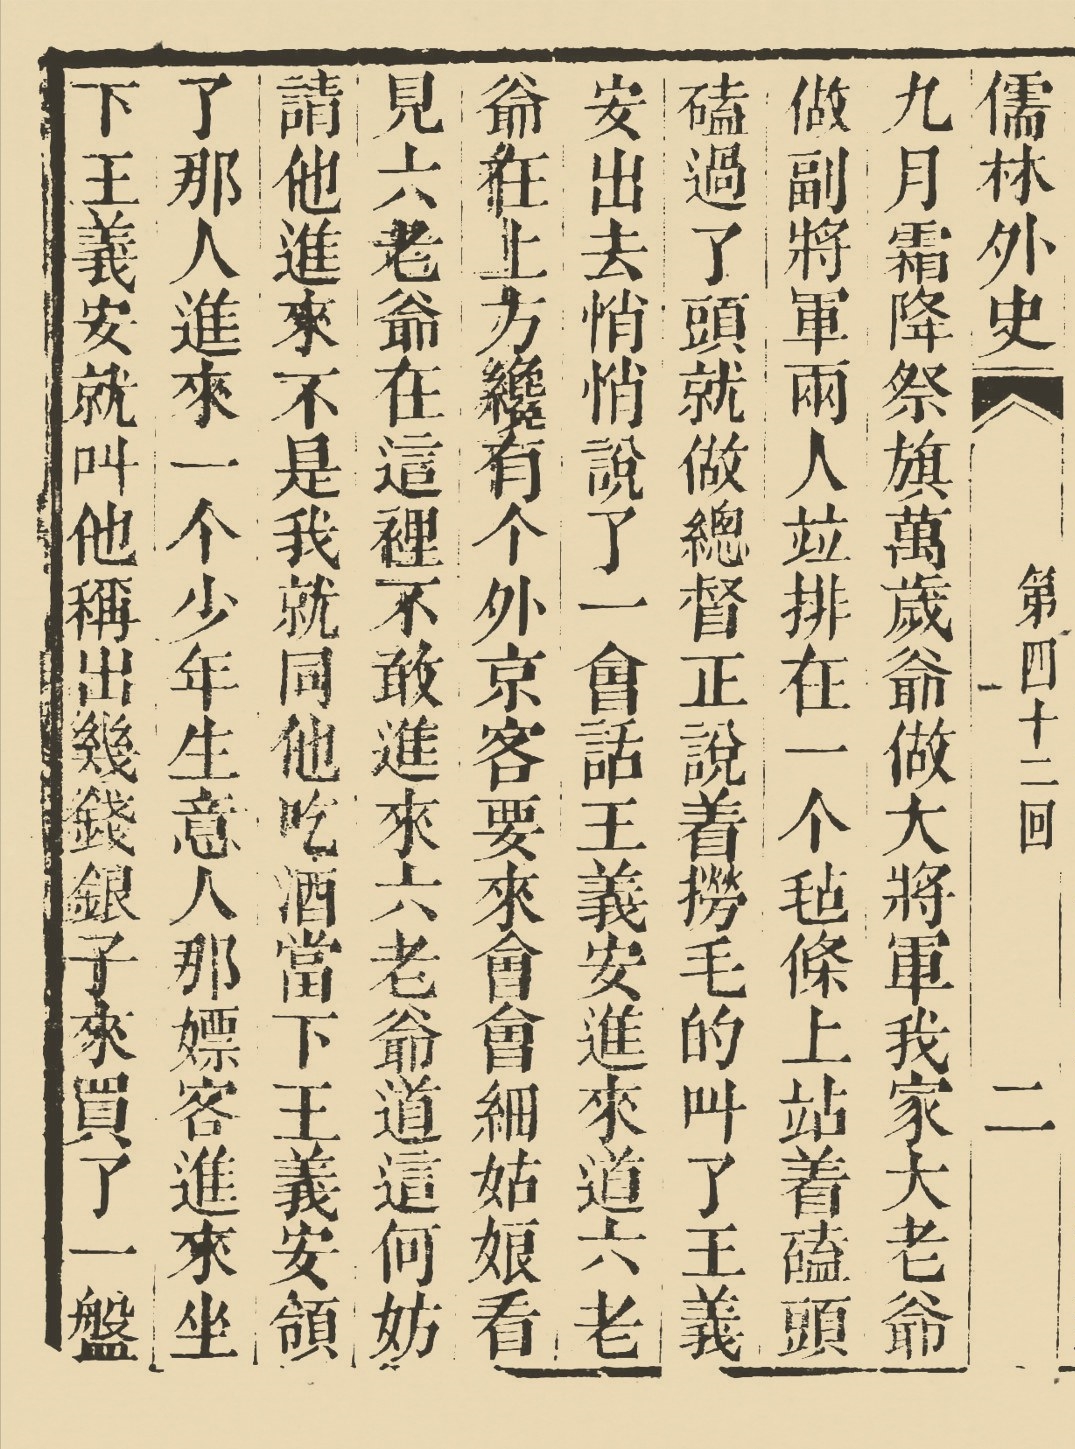 儒林外史
第四十二回
二
九月霜降祭旗萬歲爺做大將軍我家大老爺
做副將軍兩人竝排在一个毡條上站着磕頭
磕過了頭就做總督正說着撈毛的叫了王義
安出去悄悄說了一會話王義安進來道六老
爺在上方纔有个外京客要來會會細姑娘看
見六老爺在這裡不敢進來六老爺道這何妨
請他進來不是我就同他吃酒當下王義安領
了那人進來一个少年生意人那嫖客進來坐
下王義安就叫他稱出幾錢銀子來買了一盤